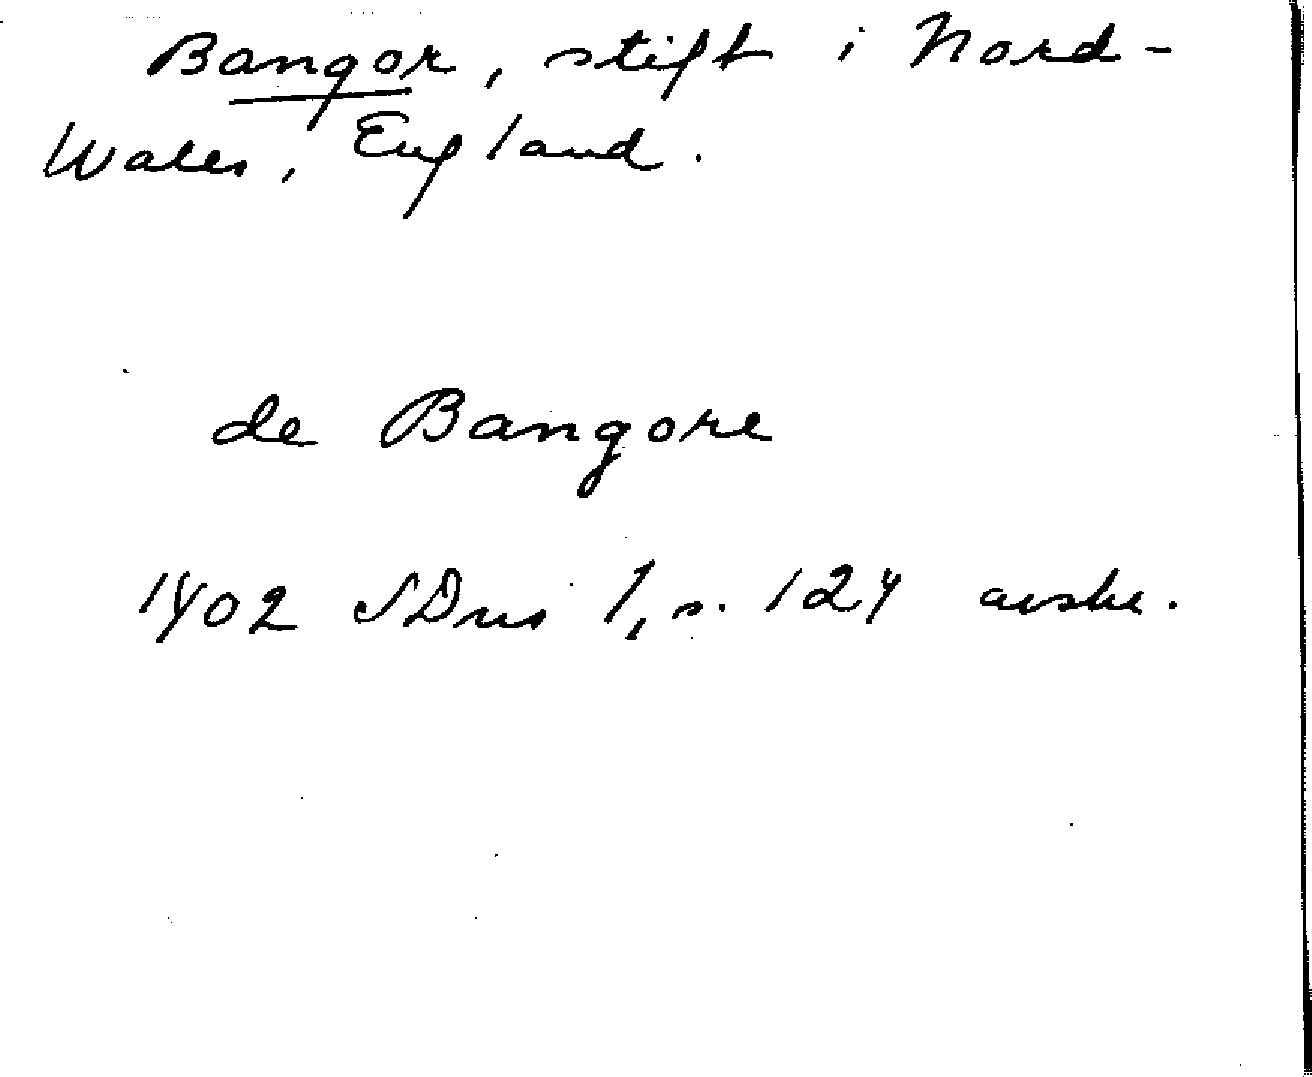 Bangor, stift i Nord-
Wales, England.
de Bangore
1402 SDns 1, s. 124 avskr.